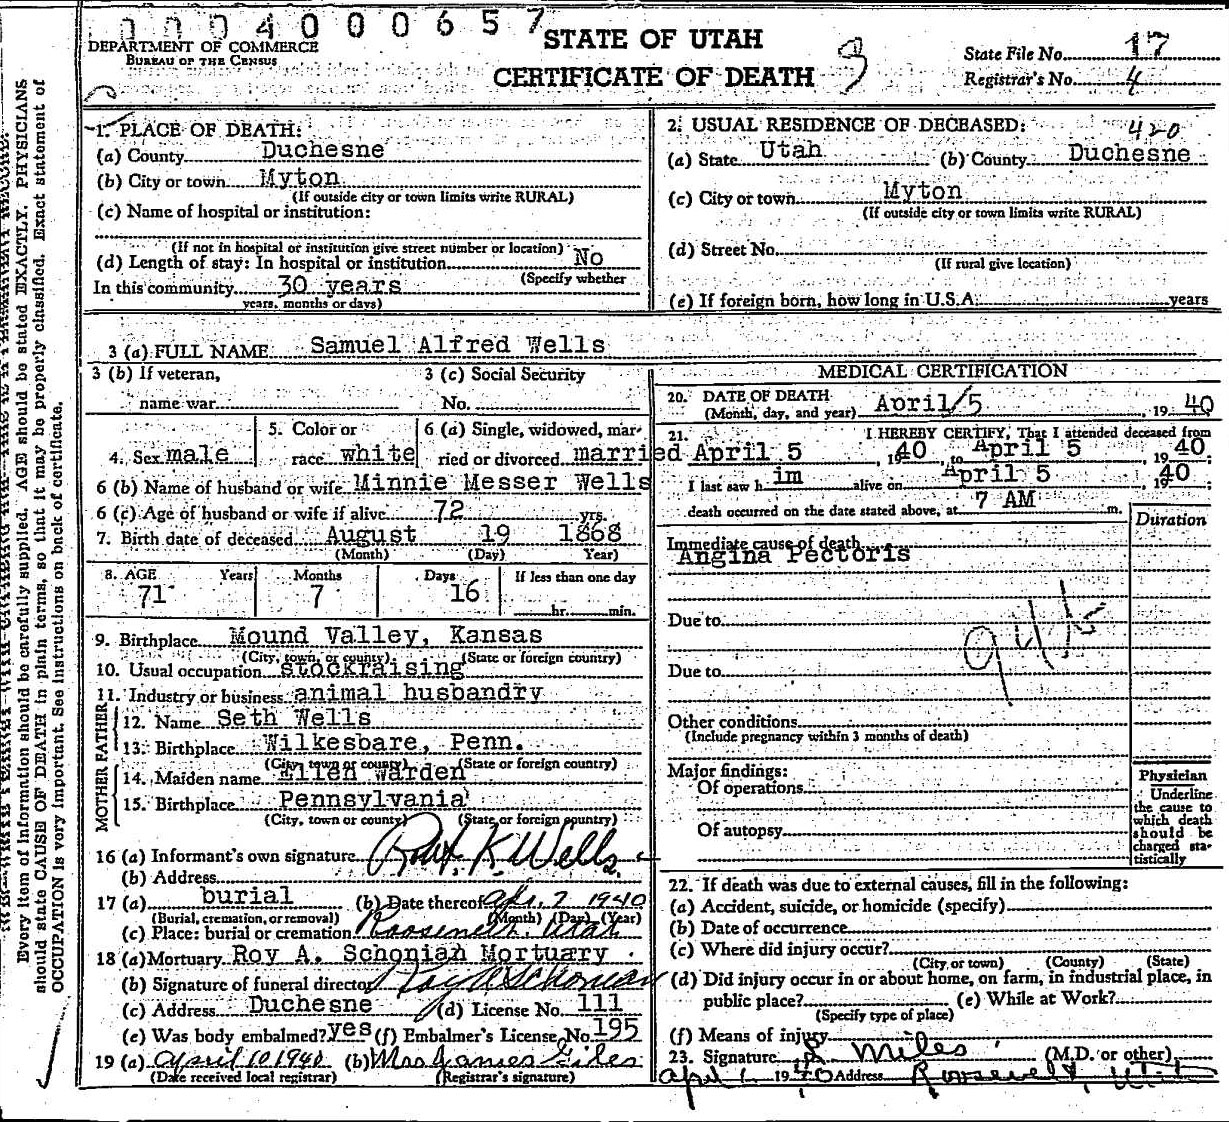 0004000657
DEPARTMENT OF COMMERCE
BUREAU OF THE CENSUS
STATE OF UTAH
CERTIFICATE OF DEATH
9
State File No. 17
Registrar's No. 4
1. PLACE OF DEATH:
(a) County Duchesne
(b) City or town Myton
(If outside city or town limits write RURAL)
(c) Name of hospital or institution:
(If not in hospital or institution give street number or location)
(d) Length of stay: In hospital or institution No
(Specify whether
In this community 30 years
years, months or days)
2. USUAL RESIDENCE OF DECEASED: 420
(a) State Utah (b) County Duchesne
(c) City or town Myton
(If outside city or town limits write RURAL)
(d) Street No.
(If rural give location)
(e) If foreign born, how long in U.S.A. years
3 (a) FULL NAME Samuel Alfred Wells
3 (b) If veteran,
name war
3 (c) Social Security
No.
4. Sex male
5. Color or
race white
6 (a) Single, widowed, mar-
ried or divorced married
6 (b) Name of husband or wife Minnie Messer Wells
6 (c) Age of husband or wife if alive 72 yrs.
7. Birth date of deceased August 19 1868
(Month) (Day) Year)
8. AGE Years Months Days If less than one day
71 7 16 hr. min.
9. Birthplace Mound Valley, Kansas
(City, town, or county) (State or foreign country)
10. Usual occupation stockraising
11. Industry or business animal husbandry
FATHER
12. Name Seth Wells
13. Birthplace Wilkesbare, Penn.
(City, town or county) (State or foreign country)
MOTHER
14. Maiden name Ellen Warden
15. Birthplace Pennsylvania
(City, town or county) (State or foreign country)
16 (a) Informant's own signature Robt. K. Wells
(b) Address
17 (a) burial (b) Date thereof Apr. 7 1940
(Burial, cremation, or removal) (Month) (Day) (Year)
(c) Place: burial or cremation Roosevelt Utah
18 (a) Mortuary Roy A. Schonian Mortuary
(b) Signature of funeral director Roy A Schonian
(c) Address Duchesne (d) License No. 111
(e) Was body embalmed? yes (f) Embalmer's License No. 195
19 (a) April 10 1940 (b) Mrs James Giles
(Date received local registrar) (Registrar's signature)
MEDICAL CERTIFICATION
20. DATE OF DEATH
(Month, day, and year) April 5, 1940
21. I HEREBY CERTIFY, That I attended deceased from
April 5, 1940 to April 5 1940.
I last saw him alive on April 5, 1940;
death occurred on the date stated above, at 7 AM m.
Duration
Immediate cause of death
Angina Pectoris
Due to
Due to
Other conditions
(Include pregnancy within 3 months of death)
Major findings:
Of operations
Of autopsy
Physician
Underline
the cause to
which death
should be
charged sta-
tistically
22. If death was due to external causes, fill in the following:
(a) Accident, suicide, or homicide (specify)
(b) Date of occurrence
(c) Where did injury occur?
(City or town) (County) (State)
(d) Did injury occur in or about home, on farm, in industrial place, in
public place? (e) While at Work?
(Specify type of place)
(f) Means of injury
23. Signature Miles (M.D. or other)
April 1940 Address Roosevelt, Utah
Every item of information should be carefully supplied. AGE should be stated EXACTLY. PHYSICIANS
should state CAUSE OF DEATH in plain terms, so that it may be properly classified. Exact statement of
OCCUPATION is very important. See instructions on back of certificate.